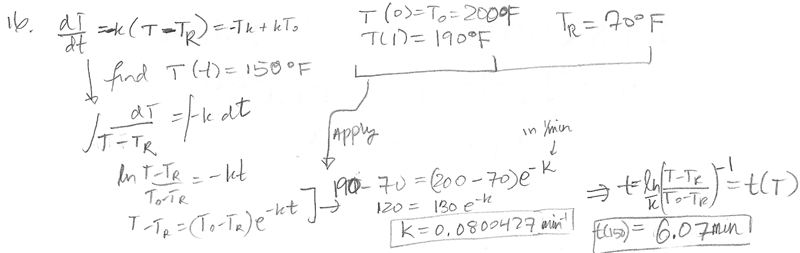 16. dT/dt = -k(T - T_R) = -Tk + kT₀
T(0) = T₀ = 200°F
T(1) = 190°F
T_R = 70°F
find T(t) = 150°F
∫ dT/(T - T_R) = ∫ -k dt
Apply
in 1/min
ln (T - T_R)/(T₀ - T_R) = -kt
T - T_R = (T₀ - T_R)e^(-kt) ] →
190 - 70 = (200 - 70)e^(-k)
120 = 130 e^(-k)
K = 0.0800427 min⁻¹
⇒ t = ln/k ((T - T_R)/(T₀ - T_R))⁻¹ = t(T)
t(150) = 6.07 min